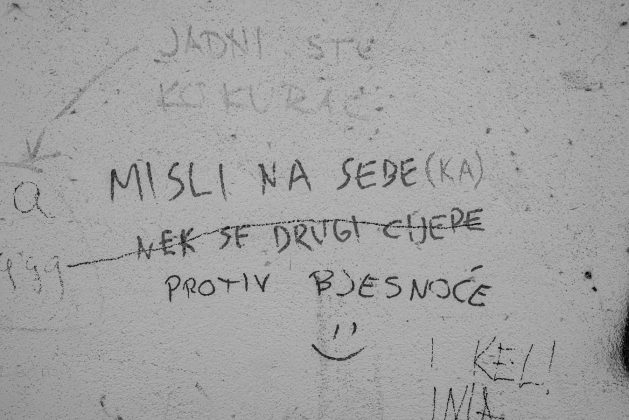 JADNI STE
KO KURAC
a
MISLI NA SEBE(KA)
NEK SE DRUGI CIJEPE
PROTIV BJESNOĆE
! KEL!